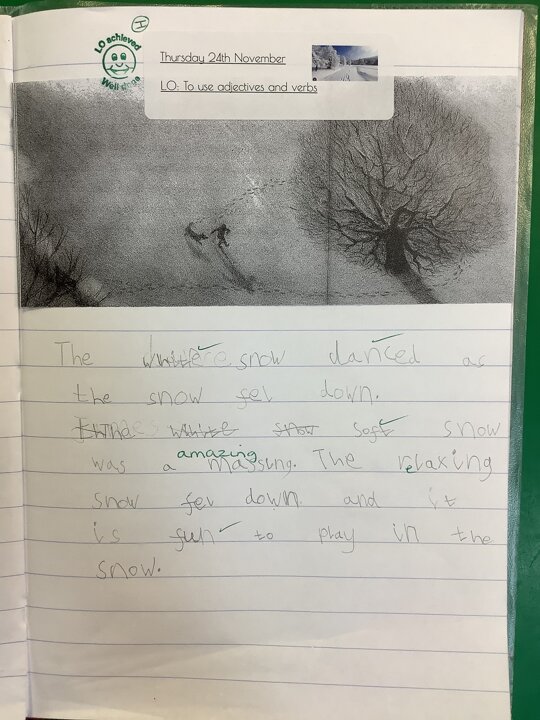 LO achieved
Well done
I
Thursday 24th November
LO: To use adjectives and verbs
The snow danced as
the snow fel down.
white snow soft snow
amazing
was a massing. The relaxing
snow fel down and it
is fun to play in the
snow.